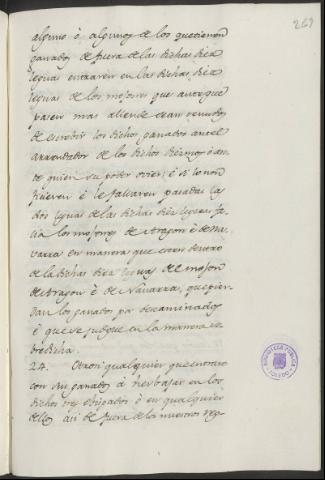 269
alguno è algunos de los que tienen
ganados de fuera de las dichas diez
leguas entraren en las dichas diez
leguas de los mojones que aunque
pasen mas allende sean tenudos
de escrebir los dichos ganados ante el
arrendador de los dichos diezmos ò an-
te quien su poder oviere, è si lo non
ficieren è le fallaren pasadas las
dos leguas de las dichas diez leguas fa-
cia los mojones de Aragon è de Na-
varra en manera que esten dentro
de la dichas diez leguas del mojon
de Aragon è de Navarra, que pier-
dan los ganados por descaminados
è que se judgue en la manera so-
bredicha.
24. Otrosi qualquier que entrare
con sus ganados à herbajar en los
dichos tres obispados ò en qualquier
dellos asi de fuera de los nuestros rey-
BIBLIOTECA PUBLICA
TOLEDO